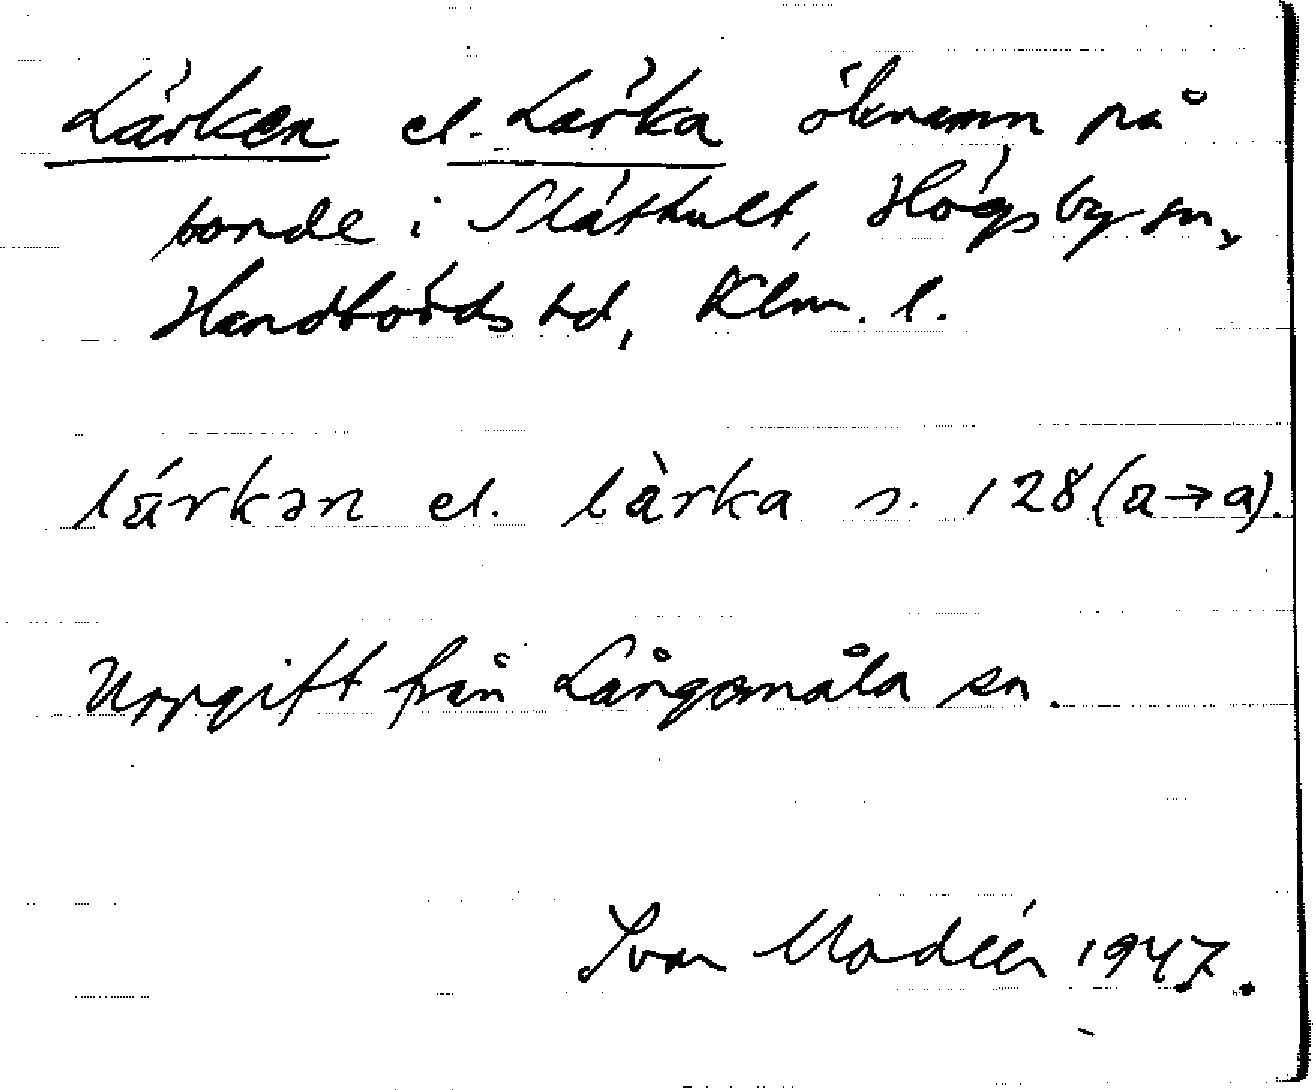 Lärken el. Lärka öknamn på
bonde i Släthult, Högsby sn,
Handbörds hd, Klm. l.
lárkən el. làrka s. 128 (a→a).
Uppgift från Långemåla sn.
Ivar Modéer 1947.